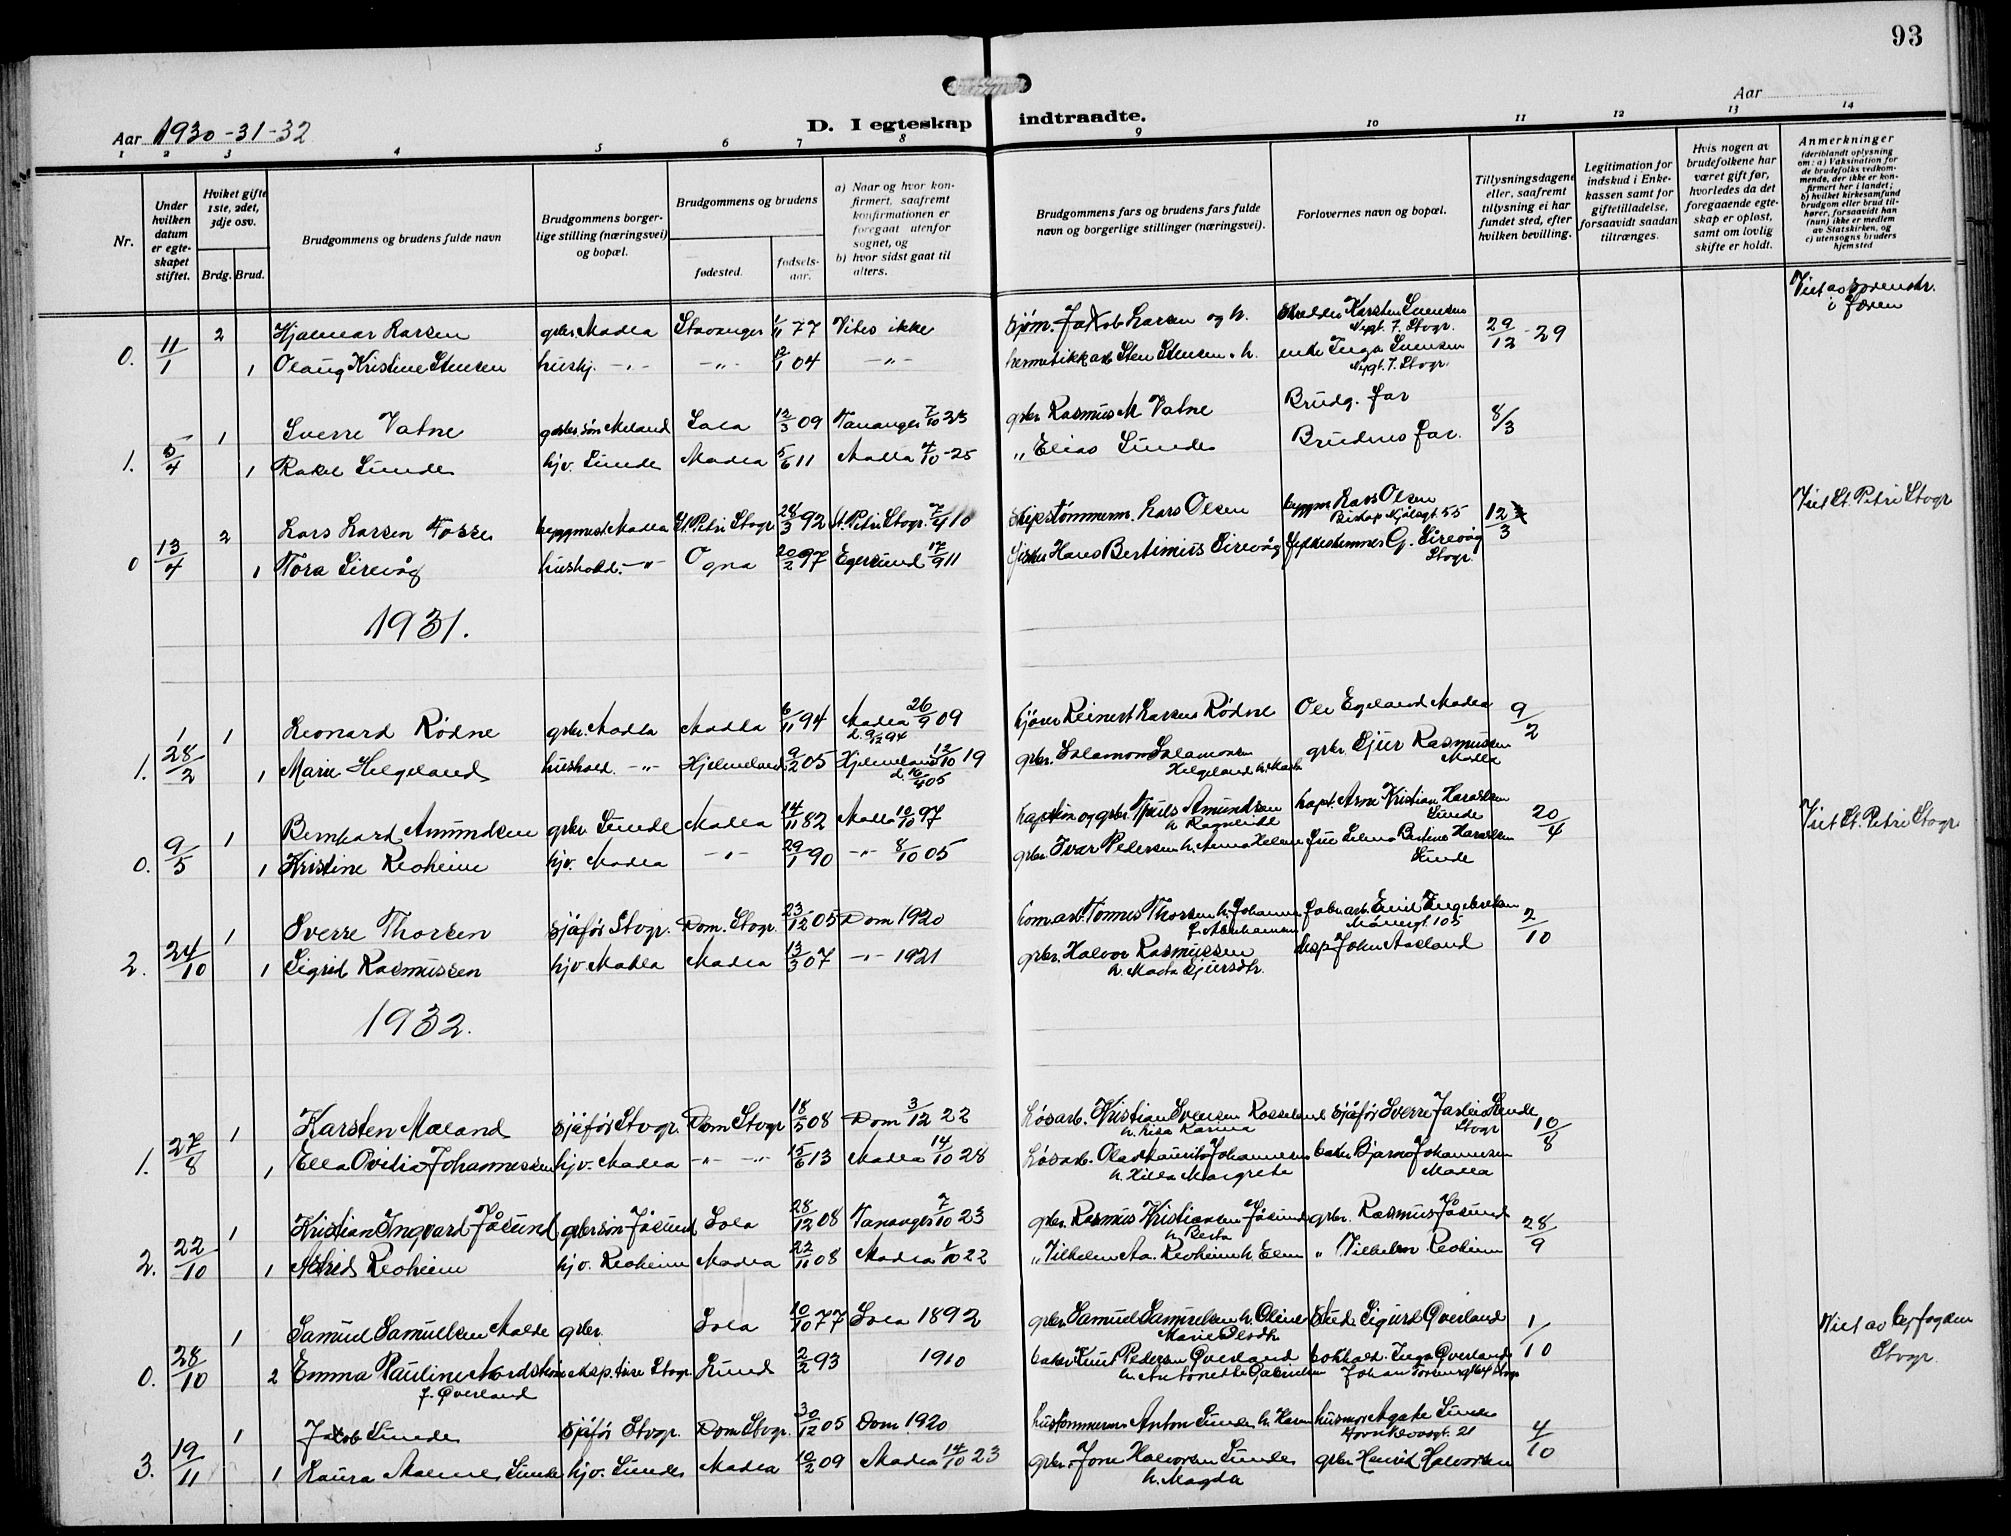 93
Aar 1930-31-32
D. I egteskap indtraadte.
Aar
1 2 3 4 5 6 7 8 9 10 11 12 13 14
Nr.
Under hvilken datum er egteskapet stiftet.
Hvilket gifte 1ste, 2det, 3dje osv.
Brdg. Brud.
Brudgommens og brudens fulde navn
Brudgommens borgerlige stilling (næringsvei) og bopæl.
Brudgommens og brudens
fødested.
fødselsaar.
a) Naar og hvor konfirmert, saafremt konfirmationen er foregaat utenfor sognet, og
b) hvor sidst gaat til alters.
Brudgommens fars og brudens fars fulde navn og borgerlige stillinger (næringsvei).
Forlovernes navn og bopæl.
Tillysningsdagene eller, saafremt tillysning ei har fundet sted, efter hvilken bevilling.
Legitimation for indskud i Enkekassen samt for giftetilladelse, forsaavidt saadan tiltrænges.
Hvis nogen av brudefolkene har været gift før, hvorledes da det foregaaende egteskap er opløst, samt om lovlig skifte er holdt.
Anmerkninger (deriblandt oplysning om: a) Vaksination for de brudefolks vedkommende, der ikke er konfirmert her i landet; b) hvilket kirkesamfund brudgom eller brud tilhører, forsaavidt han (hun) ikke er medlem av Statskirken, og c) utensogns bruders hjemsted
0. 11/1 2 Hjalmar Larsen gbr. Madla Stavanger 1/11 77 Vites ikke Sjøm. Jakob Larsen og h. Karsten Svensen Nygt. 7. Stvgr. 29/12-29
1 Olaug Kristine Stensen hushj. -"- -"- 12/1 04 -"- hermetikkarb. Sten Stensen h. enke Inga Svensen Nygt. 7. Stvgr.
1. 5/4 1 Sverre Vatne gbr. søn Meland Sola 12/3 09 Tananger 7/10 23 gbr. Rasmus M Vatne Brudg. far 8/3
1 Rakel Sunde hjv. Sunde Madla 5/6 11 Madla 4/10-25 " Elias Sunde Brudens far.
0 13/4 2 Lars Larsen Fosse byggmest. Madla St. Petri Stvgr. 28/3 92 St. Petri Stvgr. 7/4 10 Skipstømmerm. Lars Olsen byggm. Lars Olsen Biskop Njålsgt 55 12/3 Viet St. Petri Stvgr
1 Tora Sirevåg hushold. -"- Ogna 20/2 97 Egersund 17/9 11 fisker Hans Bertinius Sirevåg G. Sirevåg Stvgr.
1931.
1. 28/2 1 Leonard Rødne gbr. Madla Madla 6/11 94 Madla 26/9 09 d. 9/12 94 Reinert Larsen Rødne Ole Egeland Madla 9/2
1 Marie Helgeland hushold. -"- Hjelmeland 9/2 05 Hjelmeland 12/10 19 gbr. Salamon Salamonsen Helgeland gbr. Sjur Rasmussen Madla
0. 9/5 1 Bernhard Amundsen gbr. Sunde Madla 14/11 82 Madla 10/10 97 kaptein og gbr. Truls Amundsen h. Ragnhild kapt. Arne Kristian Haraldsen Sunde 20/4 Viet St. Petri Stvgr.
1 Kristine Reoheim hjv. Madla -"- 29/1 90 -"- 8/10 05 gbr. Ivar Pedersen h. Anna Helene fru Selma Bertine Haraldsen Sunde
2. 24/10 1 Sverre Thorsen sjåfør Stvgr. Dom. Stvgr. 23/12 05 Dom 1920 kom.arb. Tønnes Thorsen h. Johanne f. Abrahamsen fabr.arb. Emil Ingebretsen 105 2/10
1 Sigrid Rasmussen hjv Madla Madla 13/3 07 -"- 1921 gbr. Halvor Rasmussen h. Marta Sjursdtr. eksp. John Aasland
1932.
1. 27/8 1 Karsten Mæland sjåfør Stvgr. Dom Stvgr 18/5 08 Dom 3/12 22 Løsarb. Kristian Svensen Rosseland h. Lisa Karina sjåfør Sverre Sunde Stvgr 10/8
1 Ella Ovidia Johannessen hjv. Madla -"- -"- 15/6 13 Madla 14/10 28 Løsarb. Olaf Lauritz Johannesen h. Hilda Margreta baker Bjarne Johannesen Madla
2. 22/10 1 Kristian Ingvard Jåsund gbr søn Jåsund Sola 28/12 08 Tananger 7/10 23 gbr. Rasmus Kristiansen Jåsund h. Berta gbr. Rasmus Jåsund 28/9
1 Astrid Reoheim hjv. Reoheim Madla 22/11 08 Madla 1/10 22 " Vilhelm Aa. Reoheim h. Elen " Vilhelm Reoheim
0. 28/10 1 Samuel Samuelsen Malde gbr. Sola 10/10 77 Sola 1892 gbr Samuel Samuelsen h. Oline Marie Olsdtr. Stud. Sigurd Qverland 1/10 Viet av byfogden Stvgr.
2 Emma Pauline Nordstrøm eksp.trise Stvgr. Lund 2/2 93 1910 baker Knut Pedersen Qverland h. Antonette Gabrielsen bokhold. Inga Qverland
f. Qverland
3. 19/11 1 Jakob Sunde sjåfør Stvgr. Dom Stvgr. 30/12 05 Dom 1920 hustømmerm. Anton Sunde husmor Agate Sunde 21 4/10
1 Laura Malene Sunde hjv. Sunde Madla 10/2 09 Madla 14/10 23 gbr. Jone Halvorsen Sunde h. Magda gbr Henrik Halvorsen